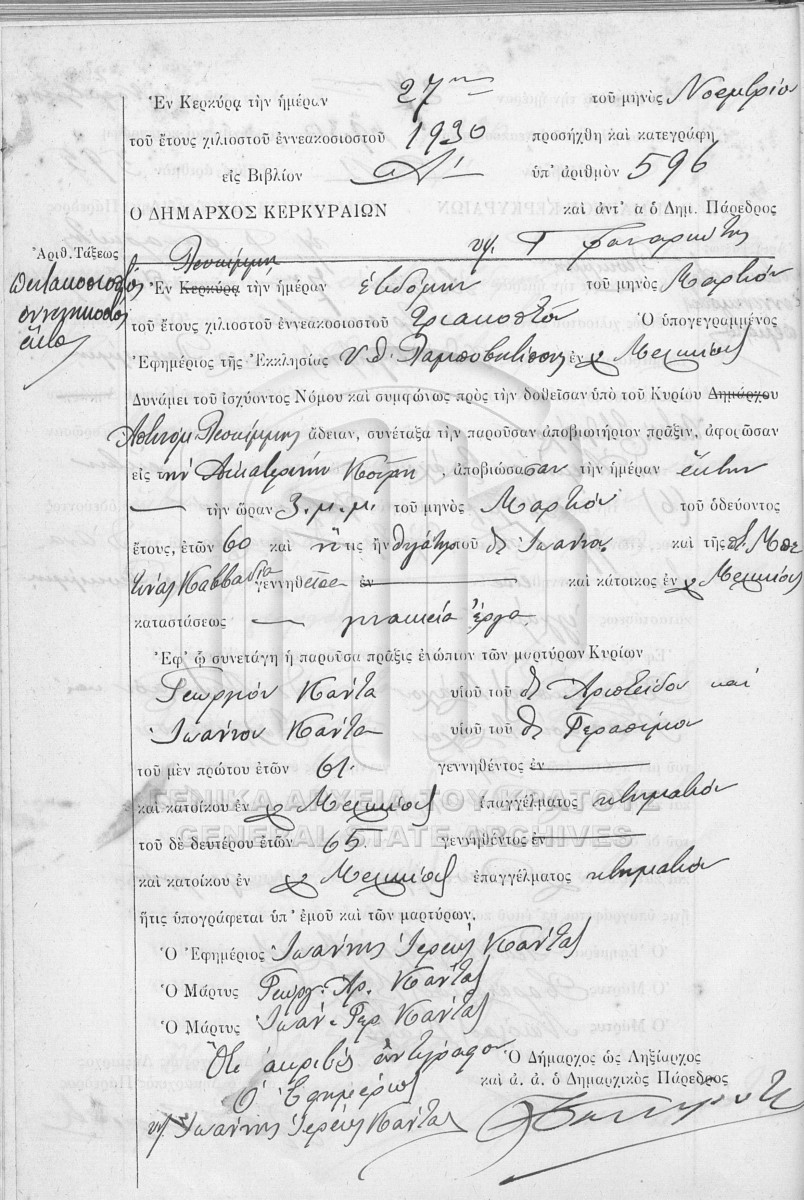 Ἐν Κερκύρᾳ τὴν ἡμέραν 27ην τοῦ μηνὸς Νοεμβρίου
τοῦ ἔτους χιλιοστοῦ ἐννεακοσιοστοῦ 1930 προσήχθη καὶ κατεγράφη
εἰς Βιβλίον Α' ὑπ' ἀριθμὸν 596
Ο ΔΗΜΑΡΧΟΣ ΚΕΡΚΥΡΑΙΩΝ καὶ ἀντ' α ὁ Δημ. Πάρεδρος
Ἀριθ. Τάξεως
πεντακοσιοστὸς
ἐννενηκοστὸς
ἕκτος
Λευκίμμῃ
Ἐν Κερκύρᾳ τὴν ἡμέραν ἑβδόμην τοῦ μηνὸς Μαρτίου
τοῦ ἔτους χιλιοστοῦ ἐννεακοσιοστοῦ τριακοστοῦ Ὁ ὑπογεγραμμένος
Ἐφημέριος τῆς Ἐκκλησίας Υ.Θ. ἐν χ Μελικίοις
Δυνάμει τοῦ ἰσχύοντος Νόμου καὶ συμφώνως πρὸς τὴν δοθεῖσαν ὑπὸ τοῦ Κυρίου Δημάρχου
Ἀστυνόμ Λευκίμμης ἄδειαν, συνέταξα τὴν παροῦσαν ἀποβιωτήριον πρᾶξιν, ἀφορῶσαν
εἰς τὴν Αἰκατερίνην , ἀποβιώσασαν τὴν ἡμέραν ἕκτην
τὴν ὥραν 3. μ.μ. τοῦ μηνὸς Μαρτίου τοῦ ὁδεύοντος
ἔτους, ἐτῶν 60 καὶ ἥτις ἦν θυγάτηρ τοῦ Ἰωάννου καὶ τῆς
Καββαδία γεννηθεῖσα ἐν καὶ κάτοικος ἐν χ Μελικίοις
καταστάσεως γυναικεῖα ἔργα
Ἐφ' ᾧ συνετάγη ἡ παροῦσα πρᾶξις ἐνώπιον τῶν μαρτύρων Κυρίων
Γεωργίου Πάντα υἱοῦ τοῦ Ἀριστείδου καὶ
Ἰωάννου Πάντα υἱοῦ τοῦ Γερασίμου
τοῦ μὲν πρώτου ἐτῶν 61. γεννηθέντος ἐν
καὶ κατοίκου ἐν χ Μελικίοις ἐπαγγέλματος κτηματίου
ΓΕΝΙΚΑ ΑΡΧΕΙΑ ΤΟΥ ΚΡΑΤΟΥΣ
GENERAL STATE ARCHIVES
τοῦ δὲ δευτέρου ἐτῶν 65. γεννηθέντος ἐν
καὶ κατοίκου ἐν χ Μελικίοις ἐπαγγέλματος κτηματίου
ἥτις ὑπογράφεται ὑπ' ἐμοῦ καὶ τῶν μαρτύρων.
Ὁ Ἐφημέριος Ἰωάννης Ἱερεὺς Πάντας
Ὁ Μάρτυς Γεωργ. Αρ. Πάντας
Ὁ Μάρτυς Ἰωάν. Γερ. Πάντας
Ὅτι ἀκριβὲς ἀντίγραφον
Ὁ Ἐφημέριος
υπ. Ἰωάννης Ἱερεὺς Πάντας
Ὁ Δήμαρχος ὡς Ληξίαρχος
καὶ ἀ. ἀ. ὁ Δημαρχικὸς Πάρεδρος